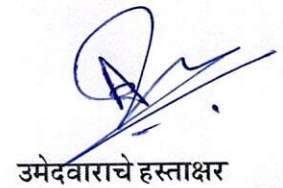 उमेदवाराचे हस्ताक्षर